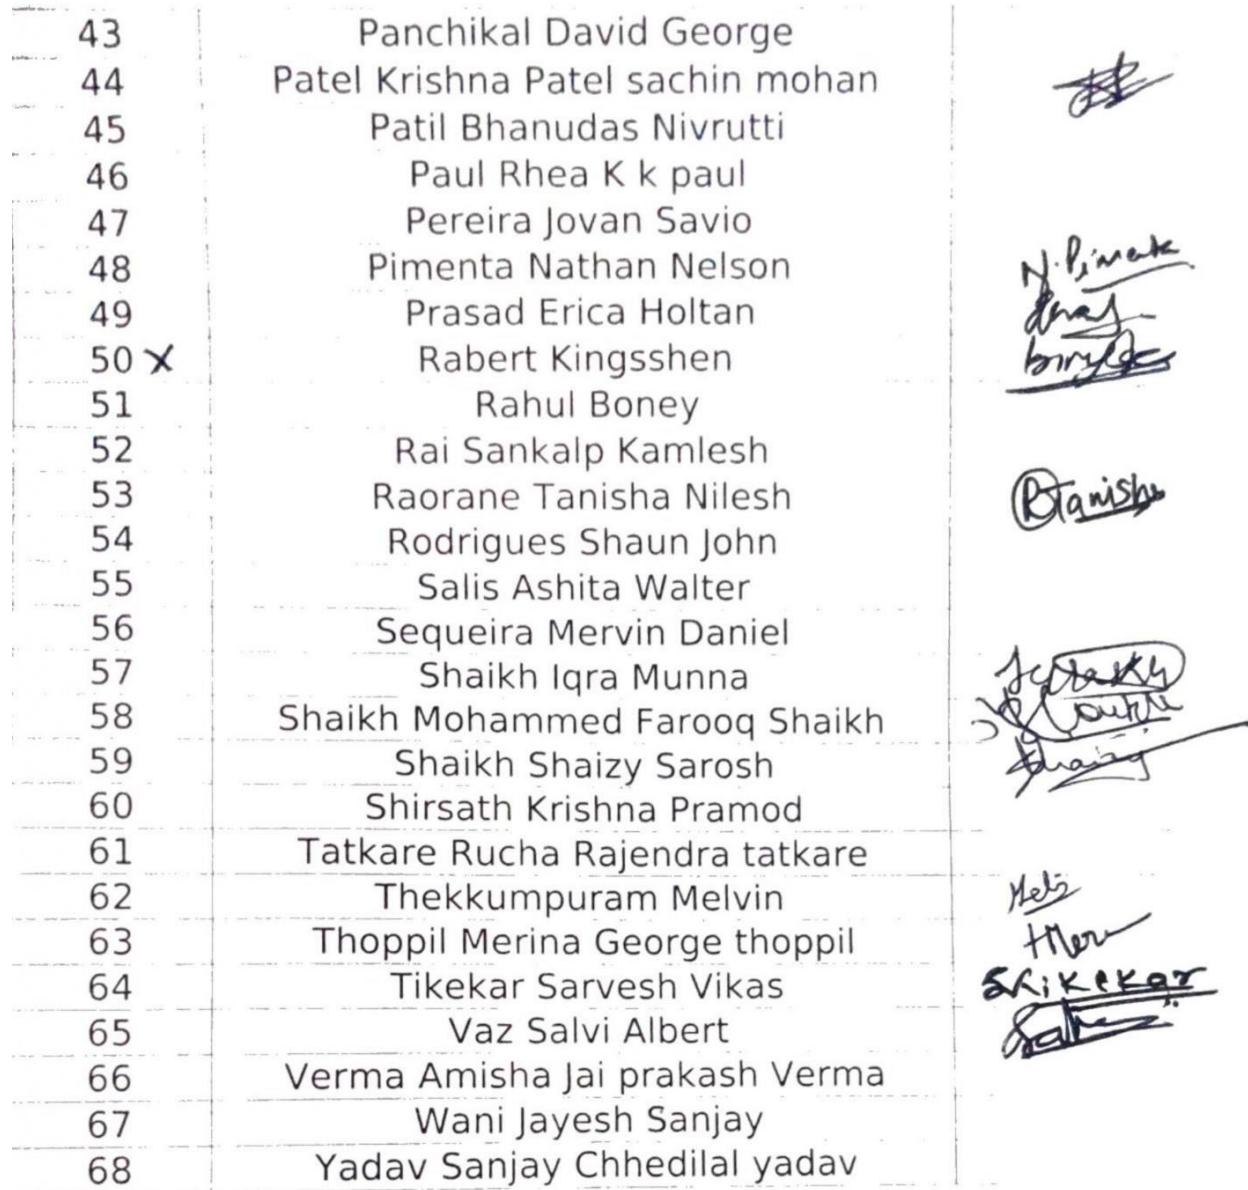 43 Panchikal David George
44 Patel Krishna Patel sachin mohan
45 Patil Bhanudas Nivrutti
46 Paul Rhea K k paul
47 Pereira Jovan Savio
48 Pimenta Nathan Nelson N. Pimenta
49 Prasad Erica Holtan
50 X Rabert Kingsshen
51 Rahul Boney
52 Rai Sankalp Kamlesh
53 Raorane Tanisha Nilesh R Tanisha
54 Rodrigues Shaun John
55 Salis Ashita Walter
56 Sequeira Mervin Daniel
57 Shaikh Iqra Munna
58 Shaikh Mohammed Farooq Shaikh
59 Shaikh Shaizy Sarosh
60 Shirsath Krishna Pramod
61 Tatkare Rucha Rajendra tatkare
62 Thekkumpuram Melvin
63 Thoppil Merina George thoppil
64 Tikekar Sarvesh Vikas
65 Vaz Salvi Albert
66 Verma Amisha Jai prakash Verma
67 Wani Jayesh Sanjay
68 Yadav Sanjay Chhedilal yadav